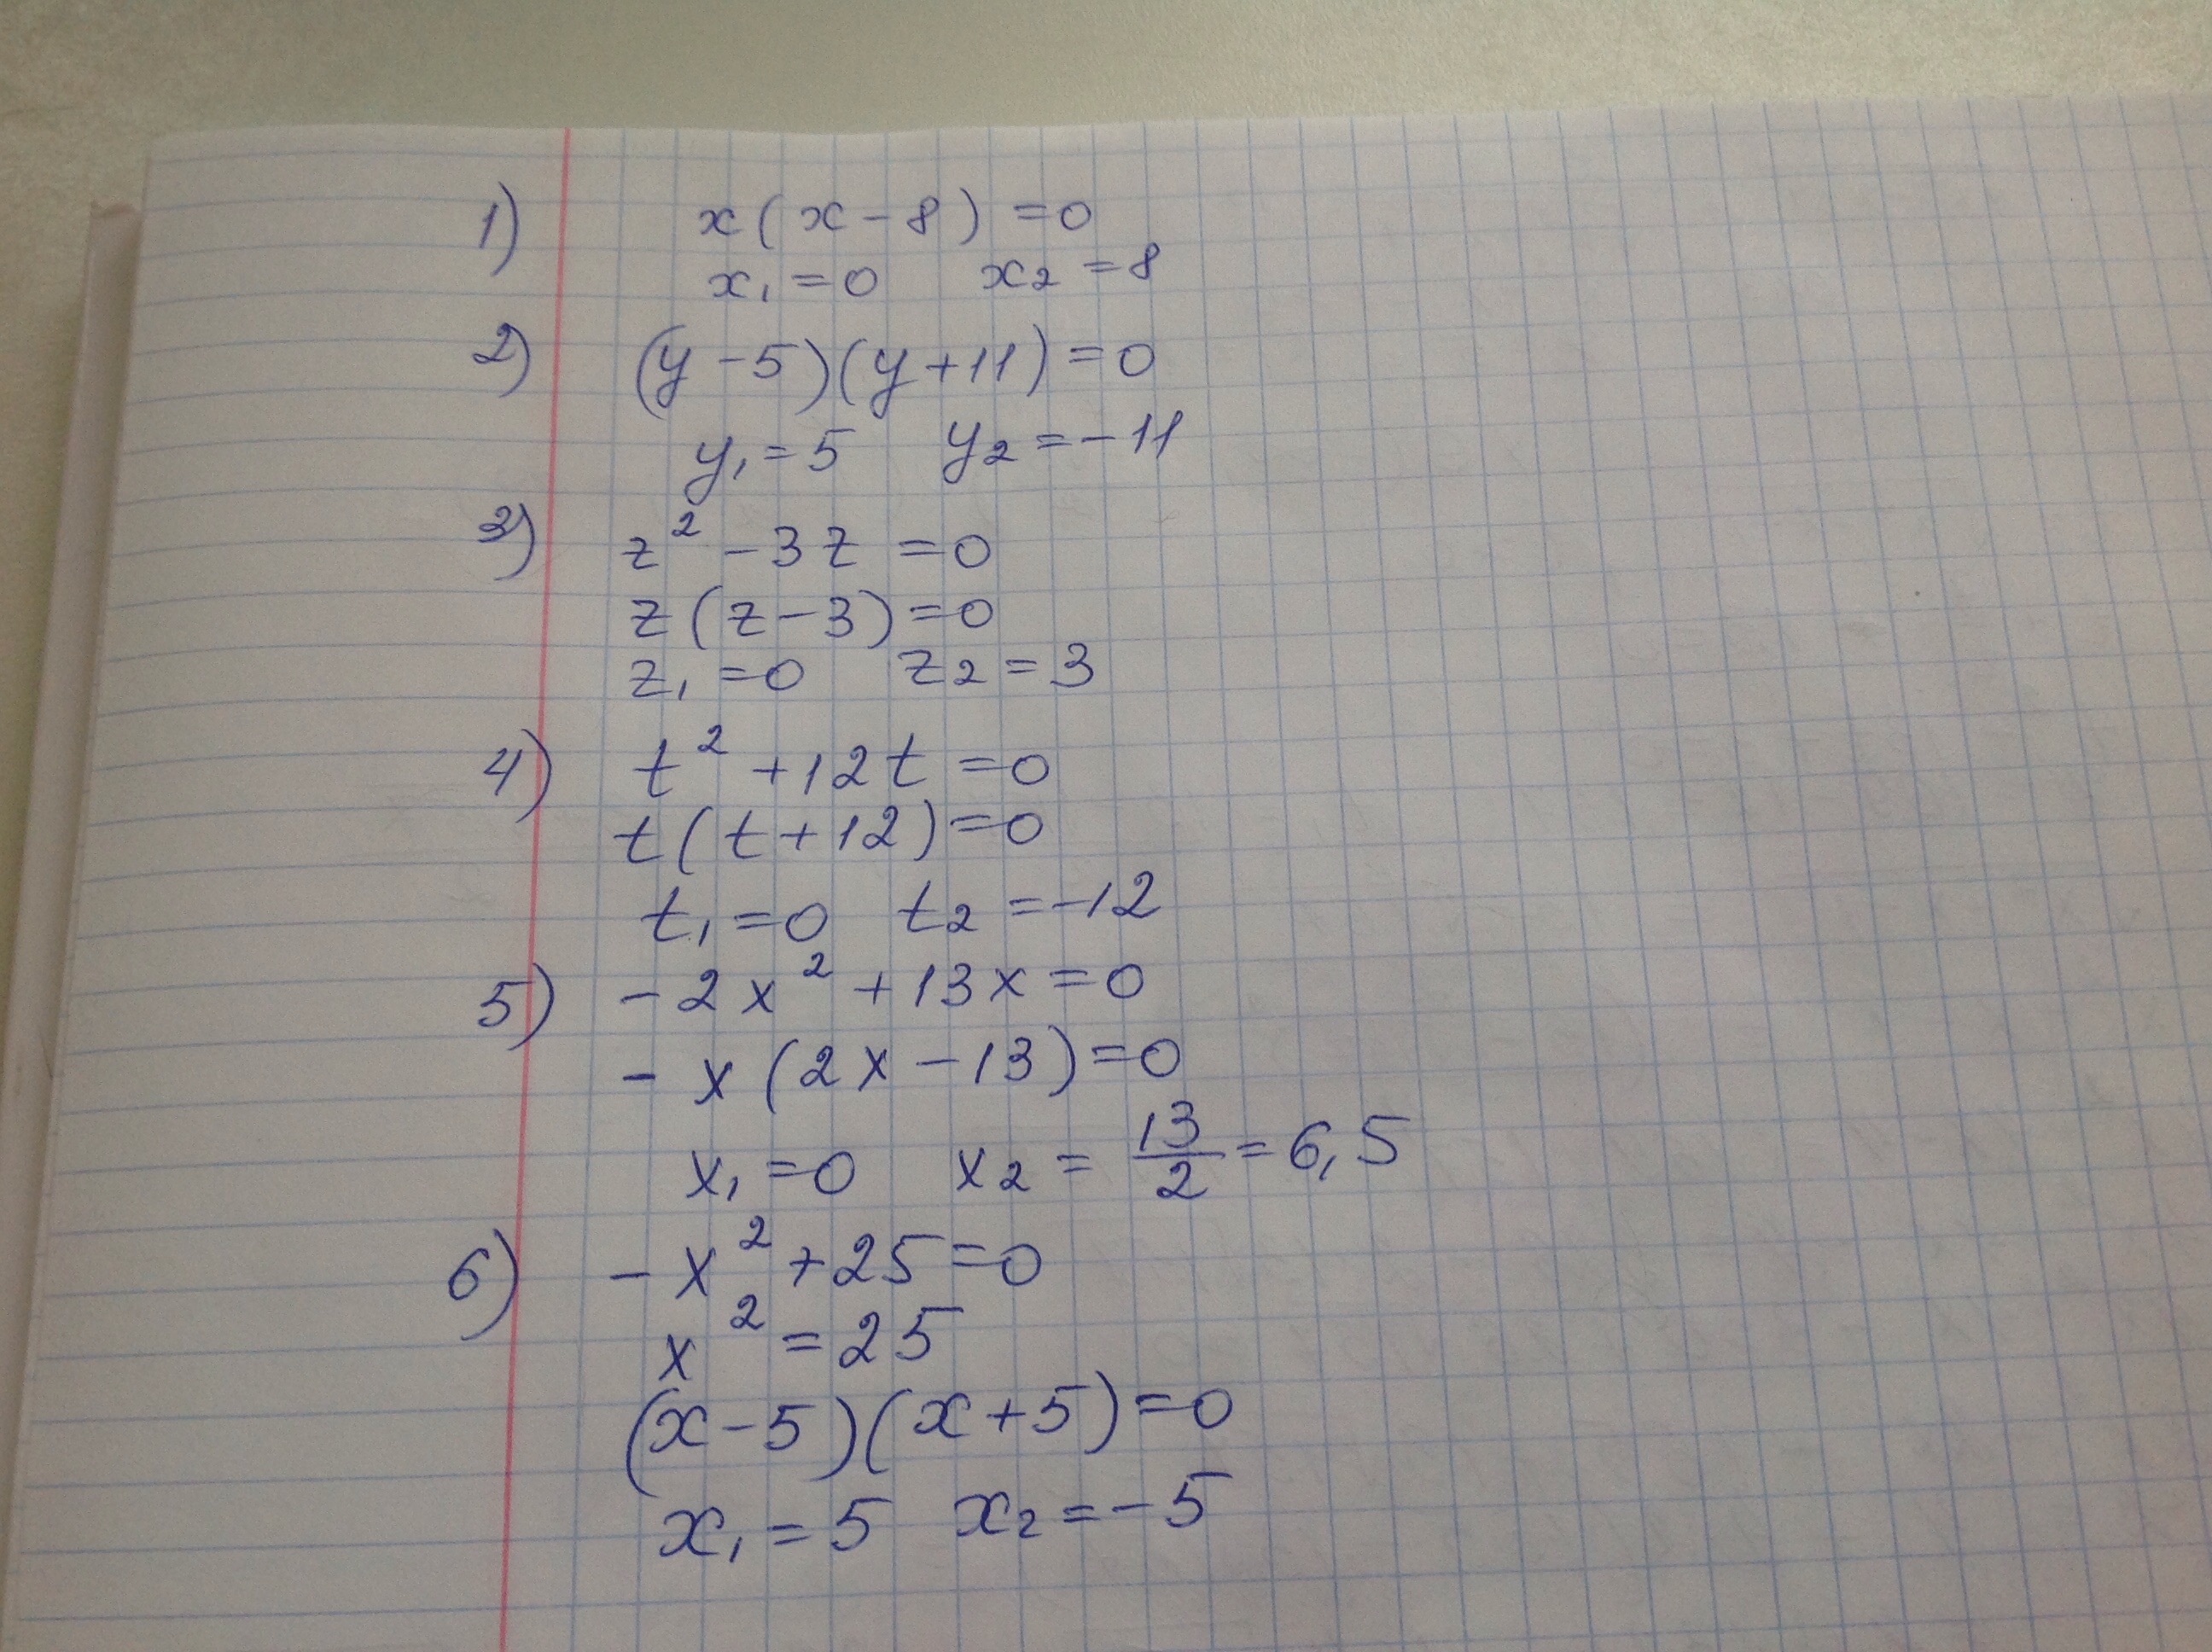 1) x(x-8)=0
x₁=0 x₂=8
2) (y-5)(y+11)=0
y₁=5 y₂=-11
3) z²-3z=0
z(z-3)=0
z₁=0 z₂=3
4) t²+12t=0
t(t+12)=0
t₁=0 t₂=-12
5) -2x²+13x=0
-x(2x-13)=0
x₁=0 x₂=13/2=6,5
6) -x²+25=0
x²=25
(x-5)(x+5)=0
x₁=5 x₂=-5